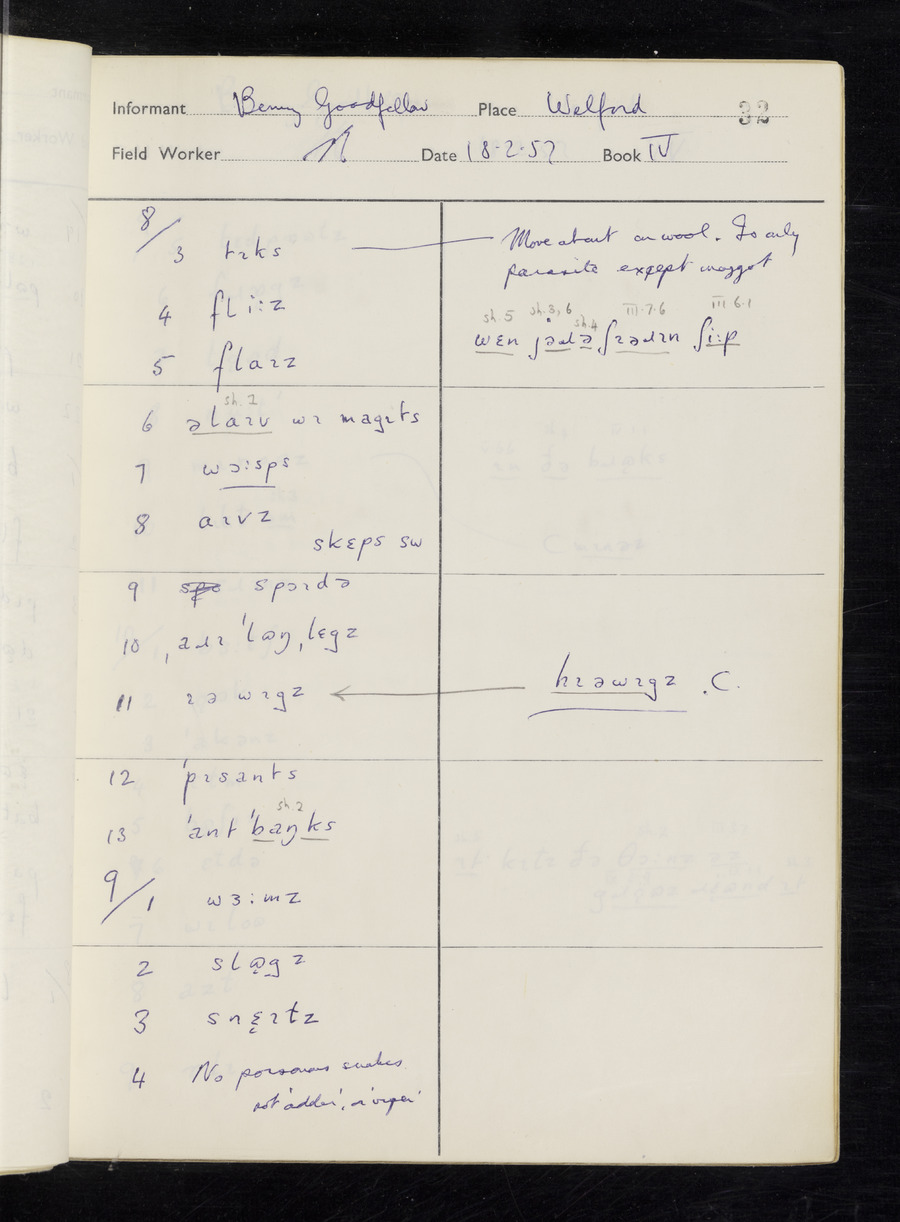 Informant Benny Goodfellow Place Welford 32
Field Worker Date 18·2·57 Book IV
8/3 tɪks
Move about on wool. Is only
parasite except maggot
4 fli:z
sh.5 sh.3,6 sh.4 III·7·6 III·6·1
wɛn jə ʃɪəɹɪn ʃi:p
5 flaɪz
sh.1
6 əlaɪv wɪ magɪts
7 wɔ:sps
8 aɪvz
skɛps sw
9 spɔɪdə
10 ˌaɹɪ ˈlɒŋˌlɛgz
11 ɪəwɪgz
hɪəwɪgz .C.
12 ˈpɪsants
sh 2
13 ˈant ˈbaŋks
9/1 wɜ:mz
2 slɒ̣gz
3 snɛ̣ɪɫz
4 No poisonous snakes
not 'adder', or 'viper'